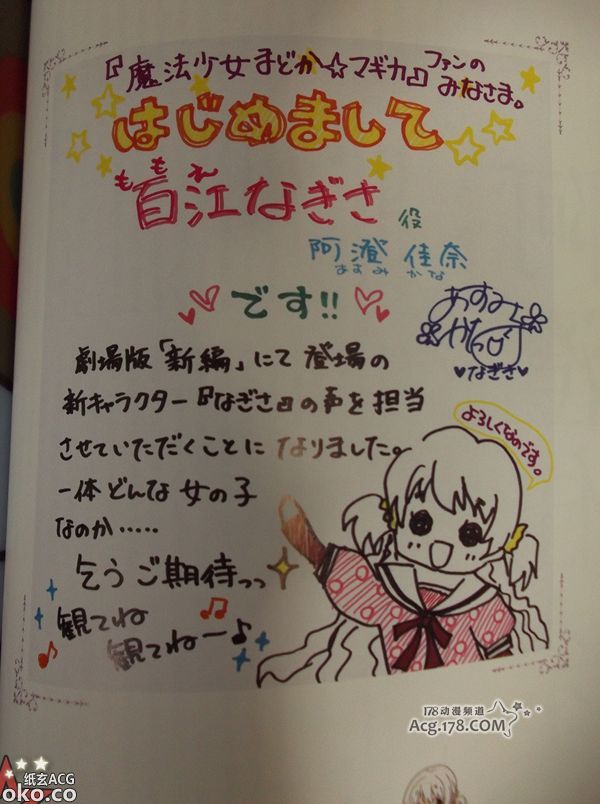 『魔法少女まどか☆マギカ』ファンの
みなさま。
はじめまして
ももえ
百江なぎさ役
阿澄 佳奈
あすみ かな
です!!
あすみ
かな
♥なぎさ♥
劇場版「新編」にて登場の
新キャラクター『なぎさ』の声を担当
させていただくことになりました。
一体どんな女の子
なのか……
乞うご期待っっ
観てね
観てねー♪
よろしくなのです。
178动漫频道
Acg.178.COM
纸玄ACG
oko.co